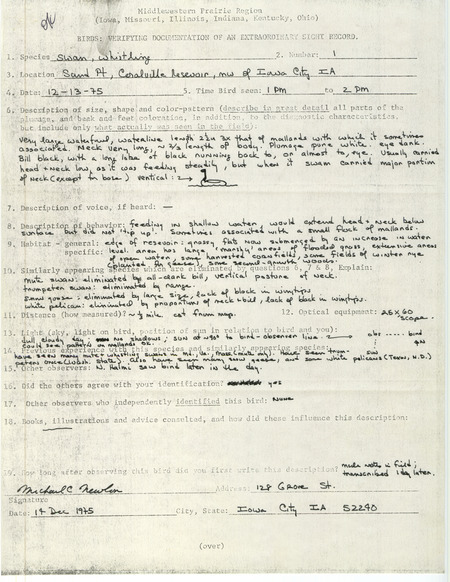 OK
Middlewestern Prairie Region
(Iowa, Missouri, Illinois, Indiana, Kentucky, Ohio)
BIRDS: VERIFYING DOCUMENTATION OF AN EXTRAORDINARY SIGHT RECORD.
1. Species swan, whistling 2. Number: 1
3. Location Sand Pt, Coralville Reservoir, NW of Iowa City IA
4. Date: 12-13-75 5. Time Bird seen: 1 PM to 2 PM
6. Description of size, shape and color-pattern (describe in great detail all parts of the
plumage, and beak and feet coloration, in addition, to the diagnostic characteristics,
but include only what actually was seen in the field):
Very large waterfowl, waterline length 2½ x 3x that of mallards with which it sometimes
associated. Neck very long, ~ ⅔ length of body. Plumage pure white. eye dark.
Bill black, with a long lobe of black running back to, or almost to, eye. Usually carried
head + neck low, as it was feeding steadily, but when it swam carried major portion
of neck (except in base) vertical:
7. Description of voice, if heard: —
8. Description of behavior: feeding in shallow water, would extend head + neck below
surface but did not "tip up". Sometimes associated with a small flock of mallards.
9. Habitat - general: edge of reservoir: grassy flats now submerged by an increase in water
specific: level. area has large "marshy" areas of flooded grass, extensive areas
of open water, some harvested cornfields, some fields of winter rye
some second-growth woods.
10. Similarly appearing species which are eliminated by questions 6, 7 & 8, Explain:
mute swan: eliminated by bill, vertical posture of neck.
trumpeter swan: eliminated by range.
snow goose: eliminated by large size, lack of black in wingtips
white pelican: eliminated by proportions of neck + bill, lack of black in wingtips.
11. Distance (how measured)? ~ ½ mile est from map. 12. Optical equipment: 25X60
scope.
13. Light (sky, light on bird, position of sun in relation to bird and you):
full cloudy day no shadows; sun at ~90° to bird-observer line. obs ---- bird
could see pattern on mallards OK. sun
14. Previous experience with this species and similarly appearing species:
have seen many mute + whistling swans in Md, Va, Mass (mute only). Have seen trum-
peters once (Wash. State). Have seen many snow geese, and some white pelicans (Texas, N.D.)
15. Other observers: N. Halmi saw bird later in the day.
16. Did the others agree with your identification? yes
17. Other observers who independently identified this bird: None
18. Books, illustrations and advice consulted, and how did these influence this description:
19. How long after observing this bird did you first write this description? made notes in field;
transcribed 1 day later.
Michael C Newlon Address: 128 Grove St.
Signature
Date: 14 Dec 1975 City, State: Iowa City IA 52240
(over)